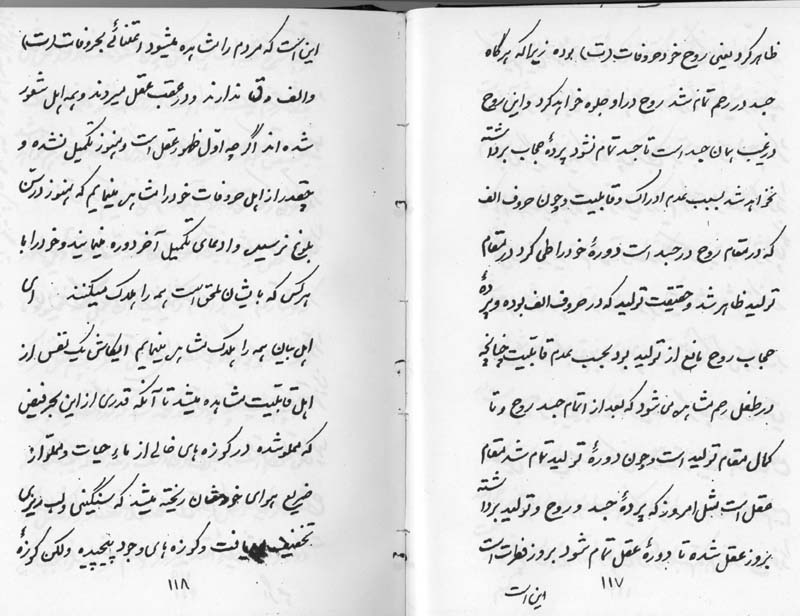 ظاهر کرد یعنی روح خود حروفات (ت) بوده زیرا که هرگاه
جسد در رحم تمام شد روح در او جلوه خواهد کرد و این روح
در غیب همان جسد است تا جسد تمام نشود پردهٔ حجاب برداشته
نخواهد شد بسبب عدم ادراک و قابلیت و چون حروف الف
که در مقام روح در جسد است دورهٔ خود را طی کرد در مقام
تولید ظاهر شد و حقیقت تولید که در حروف الف بوده و پردهٔ
حجاب روح مانع از تولید بود بجهت عدم قابلیت چنانچه
در طفل رحم مشاهده می شود که بعد از اتمام جسد روح و تا
کمال مقام تولید است و چون دورهٔ تولید تمام شد مقام
عقل است مثل امروز که پردهٔ جسد و روح و تولید برداشته
بروز عقل شده تا دورهٔ عقل تمام شود بروز فطرت است
این است
۱۱۷
این است که مردم را مشاهده میشود اعتنائی بحروفات (ت)
والف و ق ندارند و در عقب عقل میروند و همه اهل شعور
شده اند اگر چه اول ظهور عقل است و هنوز تکمیل نشده و
چقدر از اهل حروفات خود را مشاهده مینمایم که هنوز در سن
بلوغ نرسیده و ادعای تکمیل آخر دوره مینمایند و خود را با
هر کس که بایشان ملحق است همه را هلاک میکنند ای
اهل بیان همه را هلاک مشاهده مینمایم ایکاش یک نفس از
اهل قابلیت مشاهده میشد تا آنکه قدری از این بحر فیض
که مملو شده در کوزه های خالی از ماء حیات و مملو از
ضریع هوای خودشان ریخته میشد که سنگینی ولب ریزی
تخفیف یافت و کوزه های وجود پیچیده ولکن کوزهٔ
۱۱۸